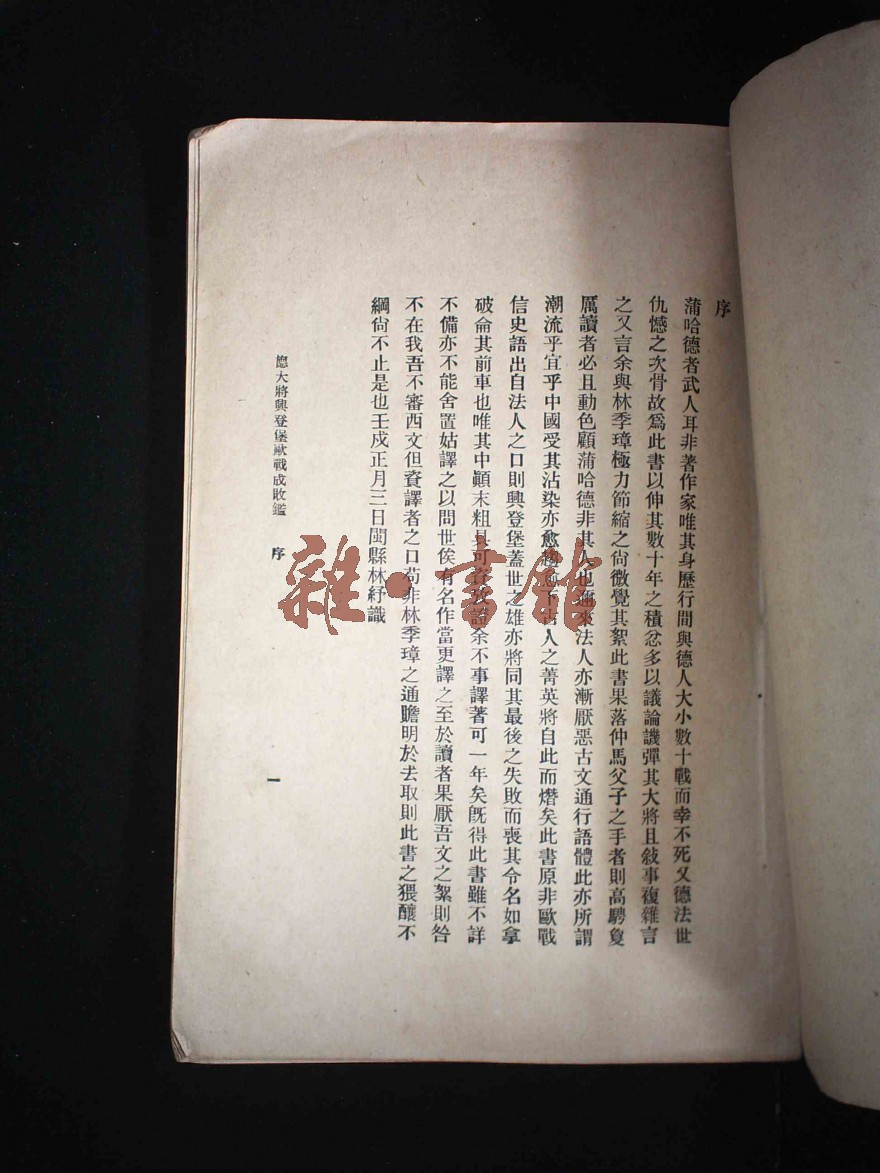 序
蒲哈德者武人耳非著作家唯其身歷行間與德人大小數十戰而幸不死又德法世
仇憾之次骨故爲此書以伸其數十年之積忿多以議論譏彈其大將且敍事複雜言
之又言余與林季璋極力節縮之尙微覺其絮此書果落仲馬父子之手者則高騁敻
厲讀者必且動色顧蒲哈德非其人也邇來法人亦漸厭惡古文通行語體此亦所謂
潮流乎宜乎中國受其沾染亦愈古人之菁英將自此而熸矣此書原非歐戰
信史語出自法人之口則興登堡蓋世之雄亦將同其最後之失敗而喪其令名如拿
破侖其前車也唯其中顚末粗具可資攷證余不事譯著可一年矣旣得此書雖不詳
不備亦不能舍置姑譯之以問世俟有名作當更譯之至於讀者果厭吾文之絮則咎
不在我吾不審西文但資譯者之口苟非林季璋之通贍明於去取則此書之猥釀不
綱尙不止是也壬戌正月三日閩縣林紓識
應大將興登堡歐戰成敗鑑 序
一
雜·書館